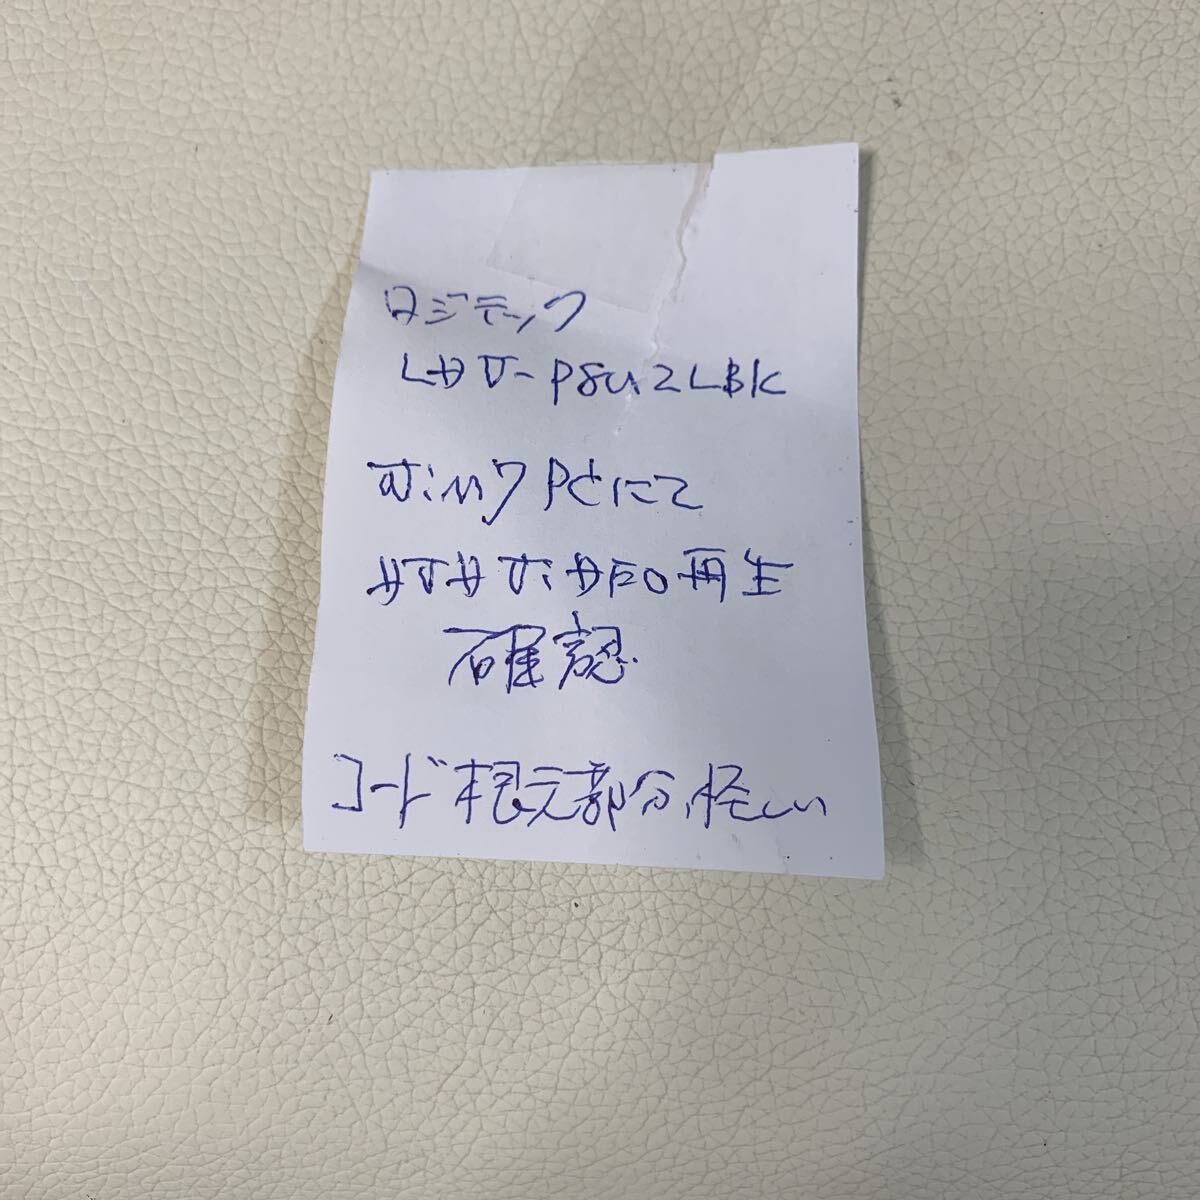 ロジテック
LDV-P8U2LBK
Win7 PCにて
DVD Video再生
確認
コード根元部分怪しい